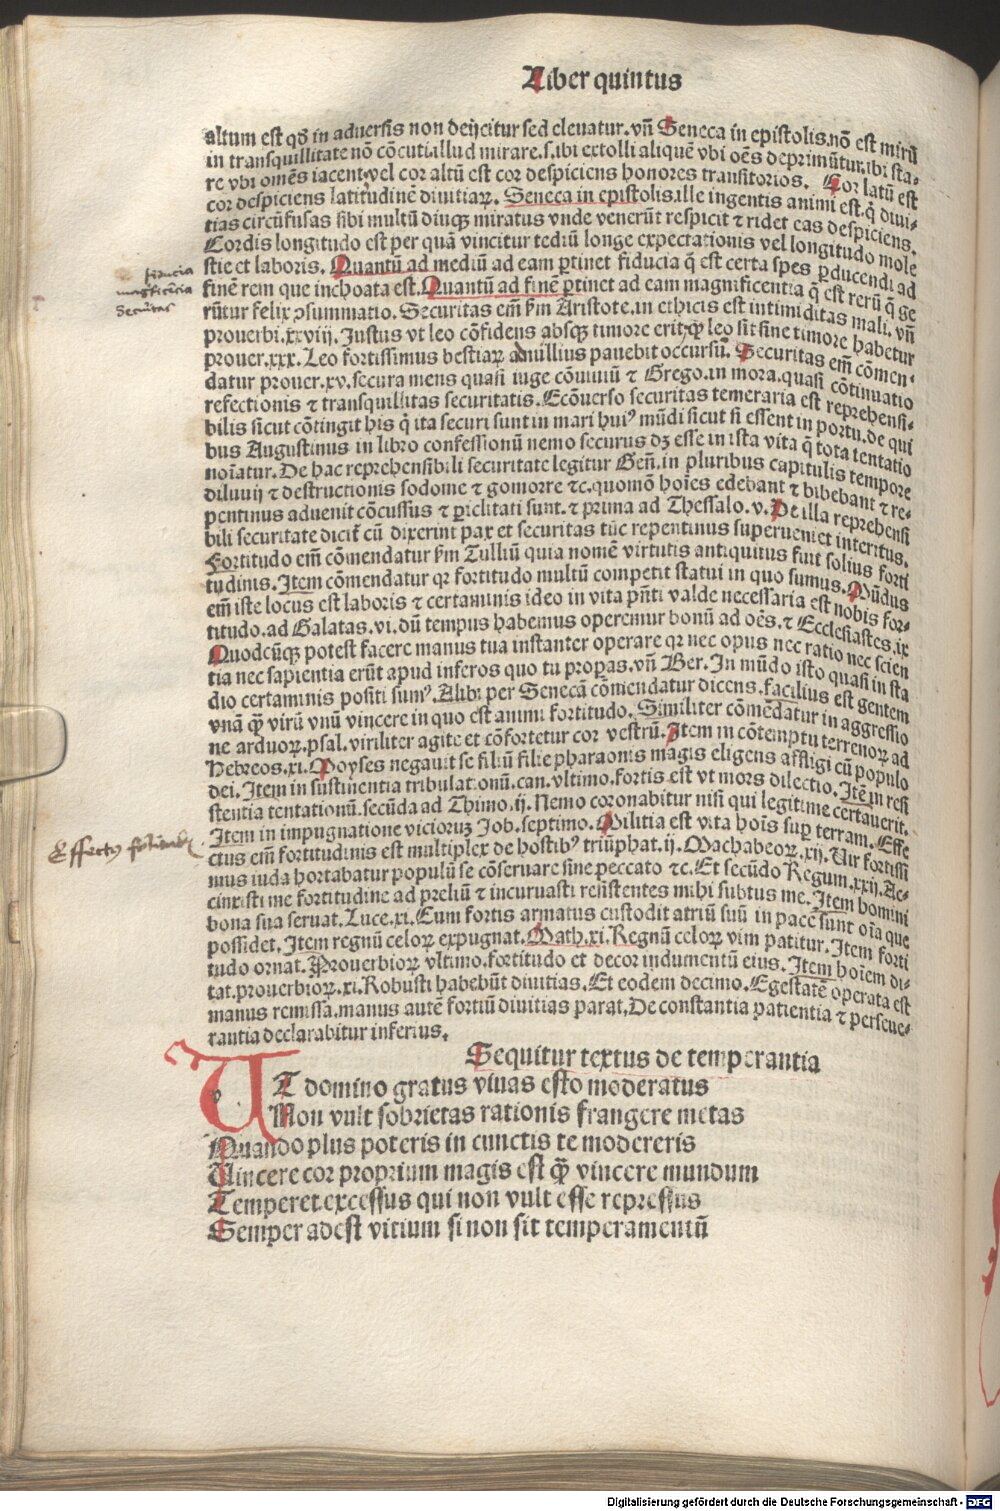 Liber quintus
altum est qd̄ in aduersis non deijcitur sed eleuatur. vn̄ Seneca in epistolis. nō est mirū
in transquillitate nō cōcuti. illud mirare. s. ibi extolli aliquē vbi oēs deprimūtur. ibi sta-
re vbi omēs iacent. vel cor altū est cor despiciens honores transitorios. Cor latū est
cor despiciens latitudinē diuitiaꝝ. Seneca in epistolis. ille ingentis animi est. q̇ diui-
tias circūfusas sibi multū diuqꝫ miratus vnde venerūt respicit ⁊ ridet eas despiciens.
Cordis longitudo est per quā vincitur tediū longe expectationis vel longitudo mole
stie et laboris. Quantū ad mediū ad eam ꝑtinet fiducia q̄ est certa spes ꝑducendi ad
finē rem que inchoata est. Quantū ad finē ꝑtinet ad eam magnificentia q̄ est rerū q̄ ge
rūtur felix ↄsummatio. Securitas em̄ ẜm Aristote. in ethicis est intimiditas mali. vn̄
prouerbi. xxviij. Justus vt leo cōfidens absqꝫ timore erit. qꝫ leo sit sine timore habetur
prouer. xxx. Leo fortissimus bestiaꝝ ad nullius pauebit occursū. Securitas em̄ cōmen-
datur prouer. xv. secura mens quasi iuge cōuiuiū ⁊ Grego. in mora. quasi cōtinuatio
refectionis ⁊ transquillitas securitatis. Ecōuerso securitas temeraria est reprehensi-
bilis sicut cōtingit his q̇ ita securi sunt in mari huiꝰ mūdi sicut si essent in portu. de qui
bus Augustinus in libro confessionū nemo securus dꝫ esse in ista vita q̄ tota tentatio
noīatur. De hac reprehensibili securitate legitur Gen̄. in pluribus capitulis tempore
diluuij ⁊ destructionis sodome ⁊ gomorre ⁊c. quomō hoīes edebant ⁊ bibebant ⁊ re-
pentinus aduenit cōcussus ⁊ ꝑiclitati sunt. ⁊ prima ad Thessalo. v. De illa reprehensi
bili securitate dicit̄ cū dixerint pax et securitas tūc repentinus superueniet interitus.
Fortitudo em̄ cōmendatur ẜm Tulliū quia nomē virtutis antiquitus fuit solius forti
tudinis. Item cōmendatur qꝛ fortitudo multū competit statui in quo sumus. Mūdus
em̄ iste locus est laboris ⁊ certaminis ideo in vita pn̄ti valde necessaria est nobis for-
titudo. ad Galatas. vi. dū tempus habemus operemur bonū ad oēs. ⁊ Ecclesiastes. ix
Quodcūqꝫ potest facere manus tua instanter operare qꝛ nec opus nec ratio nec scien
tia nec sapientia erūt apud inferos quo tu properas. vn̄ Ber. In mūdo isto quasi in sta
dio certaminis positi sumꝰ. Alibi per Senecā cōmendatur dicens. facilius est gentem
vnā q̄ȝ virū vnū vincere in quo est animi fortitudo. Similiter cōmēdatur in aggressio
ne arduoꝝ. psal. viriliter agite et cōfortetur cor vestrū. Item in cōtemptu terrenoꝝ ad
Hebreos. xi. Moyses negauit se filiū filie pharaonis magis eligens affligi cū populo
dei. Item in sustinentia tribulationū. can. vltimo. fortis est vt mors dilectio. Itē in resi
stentia tentationū. secūda ad Thimo. ij. Nemo coronabitur nisi qui legitime certauerit.
Item in impugnatione vicioruꝫ Job. septimo. Militia est vita hoīs suꝑ terram. Effe
ctus em̄ fortitudinis est multiplex de hostibꝰ triūphat. ij. Machabeoꝝ. xij. Vir fortissi
mus iuda hortabatur populū se cōseruare sine peccato ⁊c. Et secūdo Regum. xxij. Ac-
cinxisti me fortitudine ad preliū ⁊ incuruasti resistentes mihi subtus me. Item homini
bona sua seruat. Luce. xi. Cum fortis armatus custodit atriū suū in pace sunt oīa que
possidet. Item regnū celoꝝ expugnat. Math. xi. Regnū celoꝝ vim patitur. Item forti
tudo ornat. Prouerbioꝝ vltimo. fortitudo et decor indumentū eius. Item hoīem di-
tat. prouerbioꝝ. xi. Robusti habebūt diuitias. Et eodem decimo. Egestatē operata est
manus remissa. manus autē fortiū diuitias parat. De constantia patientia ⁊ perseue-
rantia declarabitur inferius.
fiducia
magficēcia
Securitas
Effectꝰ
Sequitur textus de temperantia
VT domino gratus viuas esto moderatus
Non vult sobrietas rationis frangere metas
Quando plus poteris in cunctis te modereris
Vincere cor proprium magis est q̄ȝ vincere mundum
Temperet excessus qui non vult esse repressus
Semper adest vitium si non sit temperamentū
Digitalisierung gefördert durch die Deutsche Forschungsgemeinschaft - DFG